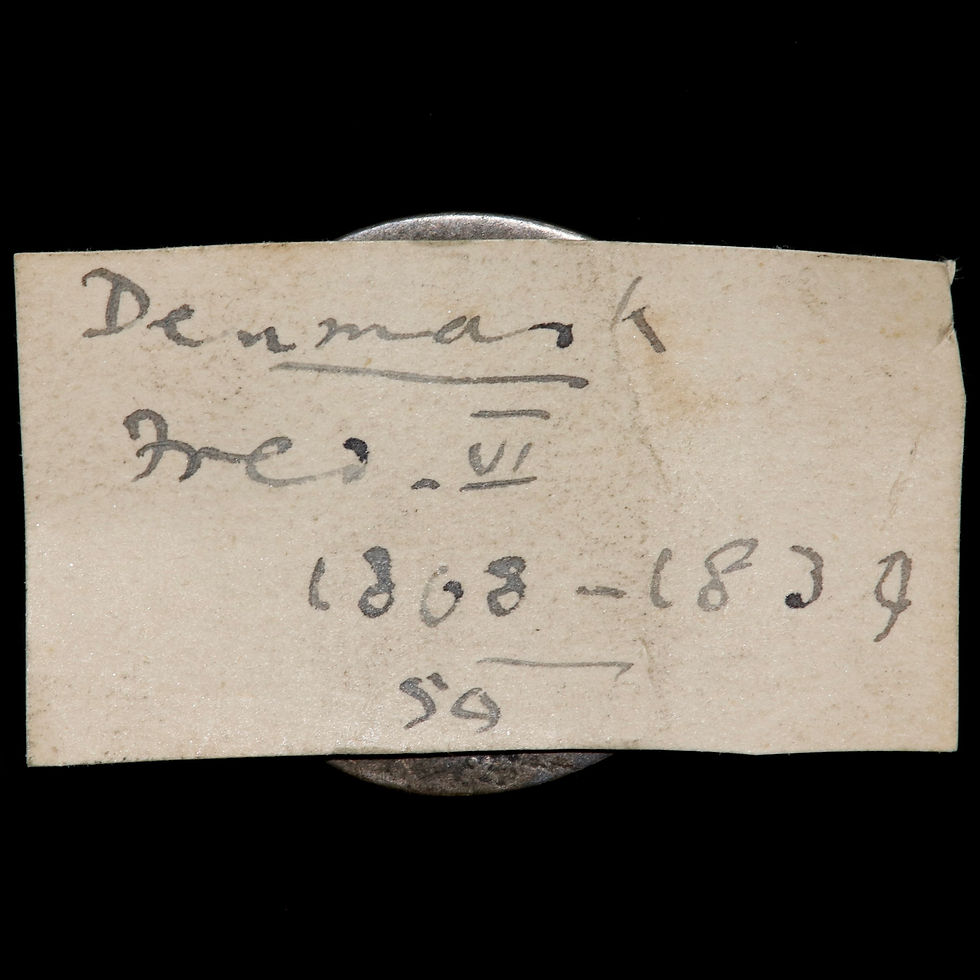 Denmark
Fred. VI
1808 - 1839
50